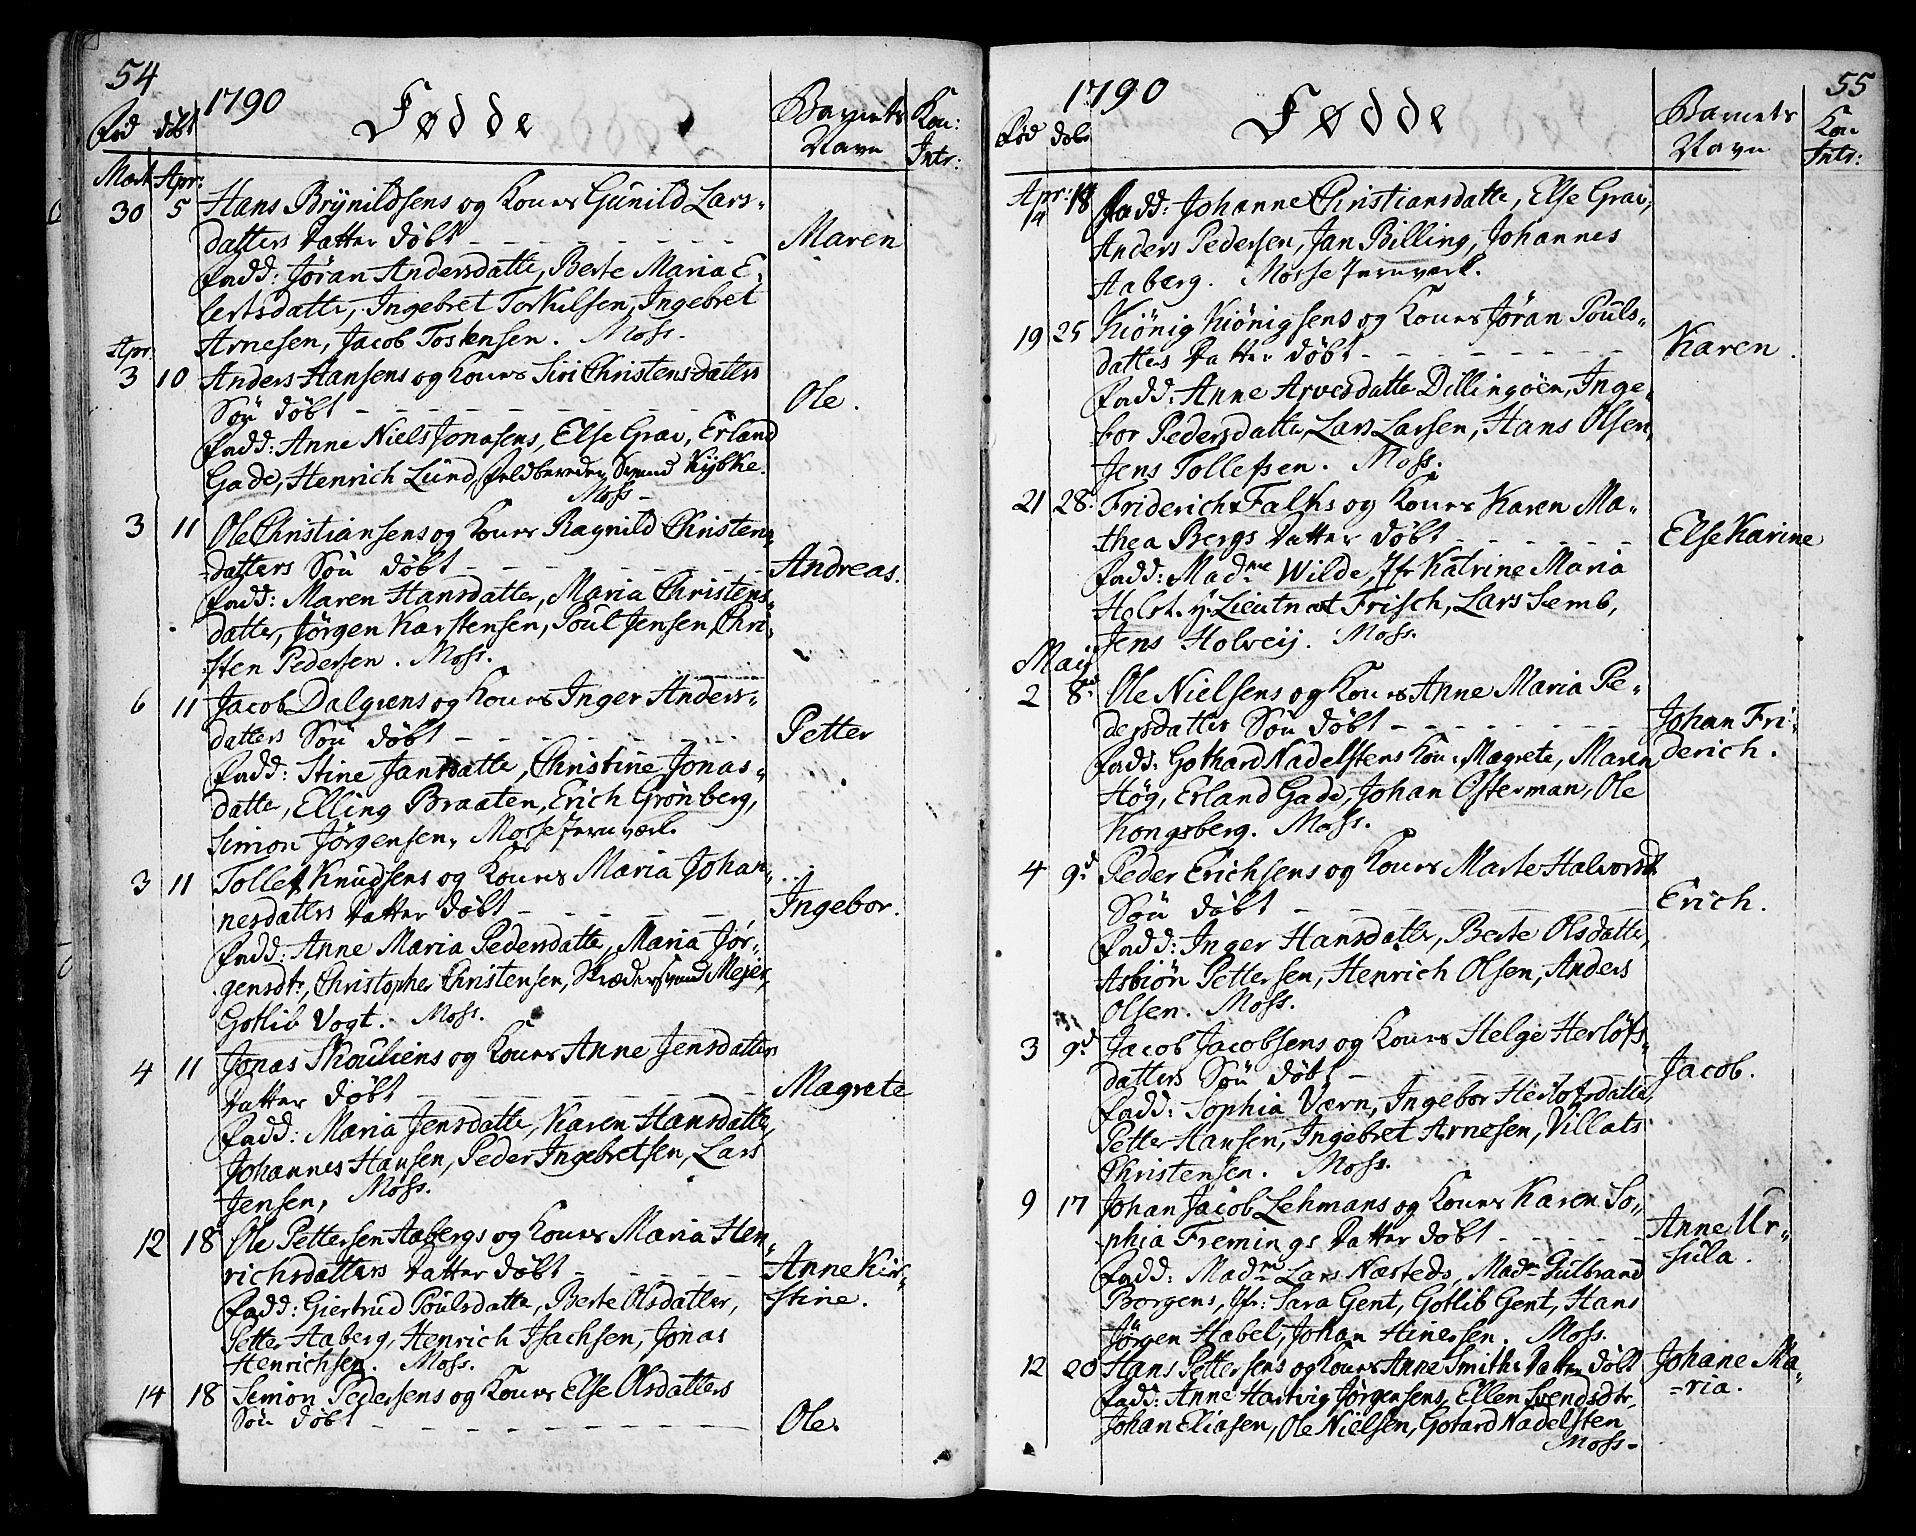 54
1790
Fødde
Barnets
Navn
Kon:
Intr:
Fød
døbt
Mart
Apr:
30 5 Hans Brÿnildsens og Kones Gunild Lars-
datters Datter døbt
Maren
Fadd: Jøran Andersdatte, Berte Maria E-
lertsdatte, Ingebret Torkilsen, Ingebret
Arnesen, Jacob Tostensen. Moss.
Apr:
3 10 Anders Hansens og Kones Siri Christensdatters
Søn døbt
Ole.
Fadd: Anne Niels Jonasens, Else Grav, Erland
Gade, Henrich Lund, Feldbereder Svend Kybke.
Moss
3 11 Ole Christiansens og Kones Ragnild Christens-
datters Søn døbt
Andreas.
Fadd: Maren Hansdatter, Maria Christens-
datter, Jørgen Karstensen, Poul Jensen, Chri-
sten Pedersen. Moss.
6 11 Jacob Dalgrens og Kones Inger Anders-
datters Søn døbt
Petter
Fadd: Stine Jansdatte, Christine Jonas-
datte, Elling Braaten, Erich Grönberg,
Simon Jørgensen, Mosse Jernværk.
3 11 Tollef Knudsens og Kones Maria Johan-
nesdatters Datter døbt
Ingebor.
Fadd: Anne Maria Pedersdatte, Maria Jør-
gensdt:, Christopher Christensen, Skrædersvend Mejer,
Gotlib Vogt. Moss.
4 11 Jonas Skouliens og Kones Anne Jensdatters
Datter døbt
Magrete
Fadd: Maria Jensdatte, Karen Hansdatte,
Johannes Hansen, Peder Ingebretsen, Lars
Jensen, Moss.
12 18 Ole Pettersen Aabergs og Kones Maria Hen-
richsdatters Datter døbt
Anne Kir-
stine.
Fadd: Giertrud Poulsdatte, Berte Olsdatter,
Petter Aaberg, Henrich Isachsen, Jonas
Henrichsen. Moss.
14 18 Simon Pedersens og Kones Else Olsdatters
Søn døbt
Ole.
55
1790
Fødde
Barnets
Navn
Kon
Intr:
Fød
døbt
Apr:
14 18 Fadd: Johanne Christiansdatte, Else Grav,
Anders Pedersen, Jan Billing, Johannes
Aaberg. Mosse Jernverk.
19 25 Kiönig Kiönigsens og Kones Jøran Pouls-
datters Datter døbt
Karen.
Fadd: Anne Arvesdatte Dillingöen, Inge-
bor Pedersdatte, Lars Larsen, Hans Olsen,
Jens Tollefsen. Moss.
21 28. Friderich Falks og Kones Karen Ma-
thea Bergs Datter døbt
Else Karine
Fadd: Madme Wilde, Jfr Katrine Maria
Holst. Lieutnat Frisch, Lars Semb,
Jens Holveij. Moss.
Maij
2 8d Ole Nielsens og Kones Anne Maria Pe-
dersdatters Søn døbt
Johan Fri-
derich.
Fadd: Gothard Nadelstens Kone Magrete, Maren
Høg, Erland Gade, Johan Osterman, Ole
Kongsberg. Moss.
4 9d Peder Erichsens og Kones Marte Halvorsdt
Søn døbt
Erich.
Fadd: Inger Hansdatte, Berte Olsdatte,
Asbiön Pettersen, Henrich Olsen, Anders
Olsen. Moss.
3 9d Jacob Jacobsens og Kones Helge Herlöfs-
datters Søn døbt
Jacob.
Fadd: Sophia Værn, Ingebor Herlofsdatte,
Petter Hansen, Ingebret Arnesen, Villats
Christensen. Moss.
9 17 Johan Jacob Lehmans og Kones Karen So-
phia Fremings Datter døbt
Anne Ur-
sula.
Fadd: Madm Lars Næsteds, Madm Gulbrand
Borgens, Jfr: Sara Gent, Gotlib Gent, Hans
Jörgen Habel, Johan Hinersen. Moss.
12 20 Hans Pettersens og Kones Anne Smiths Datter døbt
Johane Ma-
ria.
Fadd: Anne Hartvig Jørgensens, Ellen Svendsdtr,
Johan Eliasen, Ole Nielsen, Gotard Nadelsten
Moss